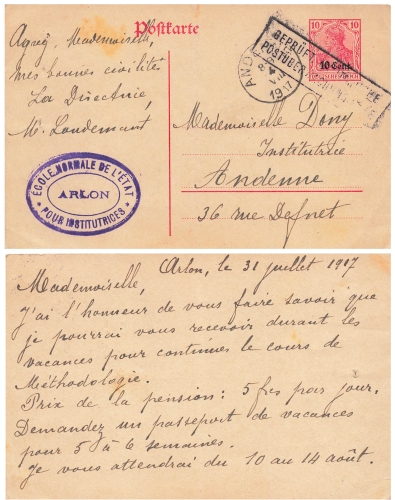 Postkarte
Agréez, Mademoiselle,
mes bonnes civilités
La Directrice,
M. Loudemant
ÉCOLE NORMALE DE L'ÉTAT
ARLON
POUR INSTITUTRICES
10 10
10 Cent.
GEPRÜFT
POSTÜBER
17
Mademoiselle Deny
Institutrice
Andenne
36 rue Defnet
Arlon, le 31 juillet 1917
Mademoiselle,
J'ai l'honneur de vous faire savoir que
je pourrai vous recevoir durant les
vacances pour continuer le cours de
Méthodologie.
Prix de la pension: 5 frs par jour.
Demandez un passeport de vacances
pour 5 à 6 semaines.
Je vous attendrai du 10 au 14 août.